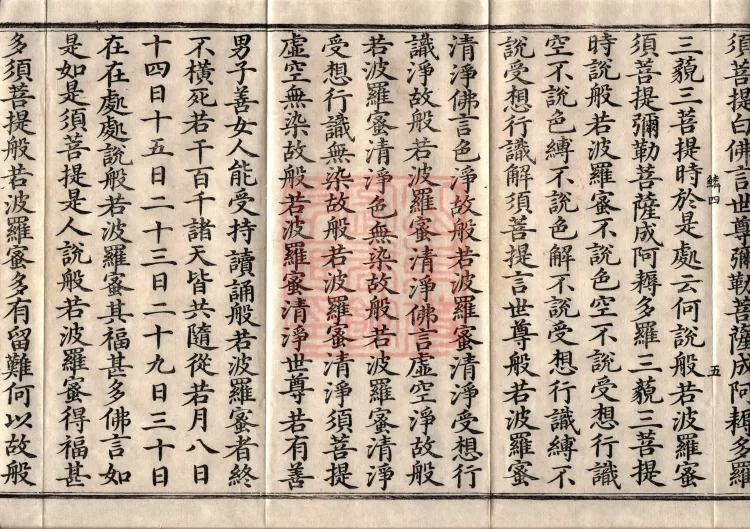 須菩提白佛言世尊彌勒菩薩成阿耨多羅
鱗四 五
三藐三菩提時於是處云何說般若波羅蜜
須菩提彌勒菩薩成阿耨多羅三藐三菩提
時說般若波羅蜜不說色空不說受想行識
空不說色縛不說色解不說受想行識縛不
說受想行識解須菩提言世尊般若波羅蜜
清淨佛言色淨故般若波羅蜜清淨受想行
識淨故般若波羅蜜清淨佛言虛空淨故般
若波羅蜜清淨色無染故般若波羅蜜清淨
受想行識無染故般若波羅蜜清淨須菩提
虛空無染故般若波羅蜜清淨世尊若有善
男子善女人能受持讀誦般若波羅蜜者終
不橫死若干百千諸天皆共隨從若月八日
十四日十五日二十三日二十九日三十日
在在處處說般若波羅蜜其福甚多佛言如
是如是須菩提是人說般若波羅蜜得福甚
多須菩提般若波羅蜜多有留難何以故般